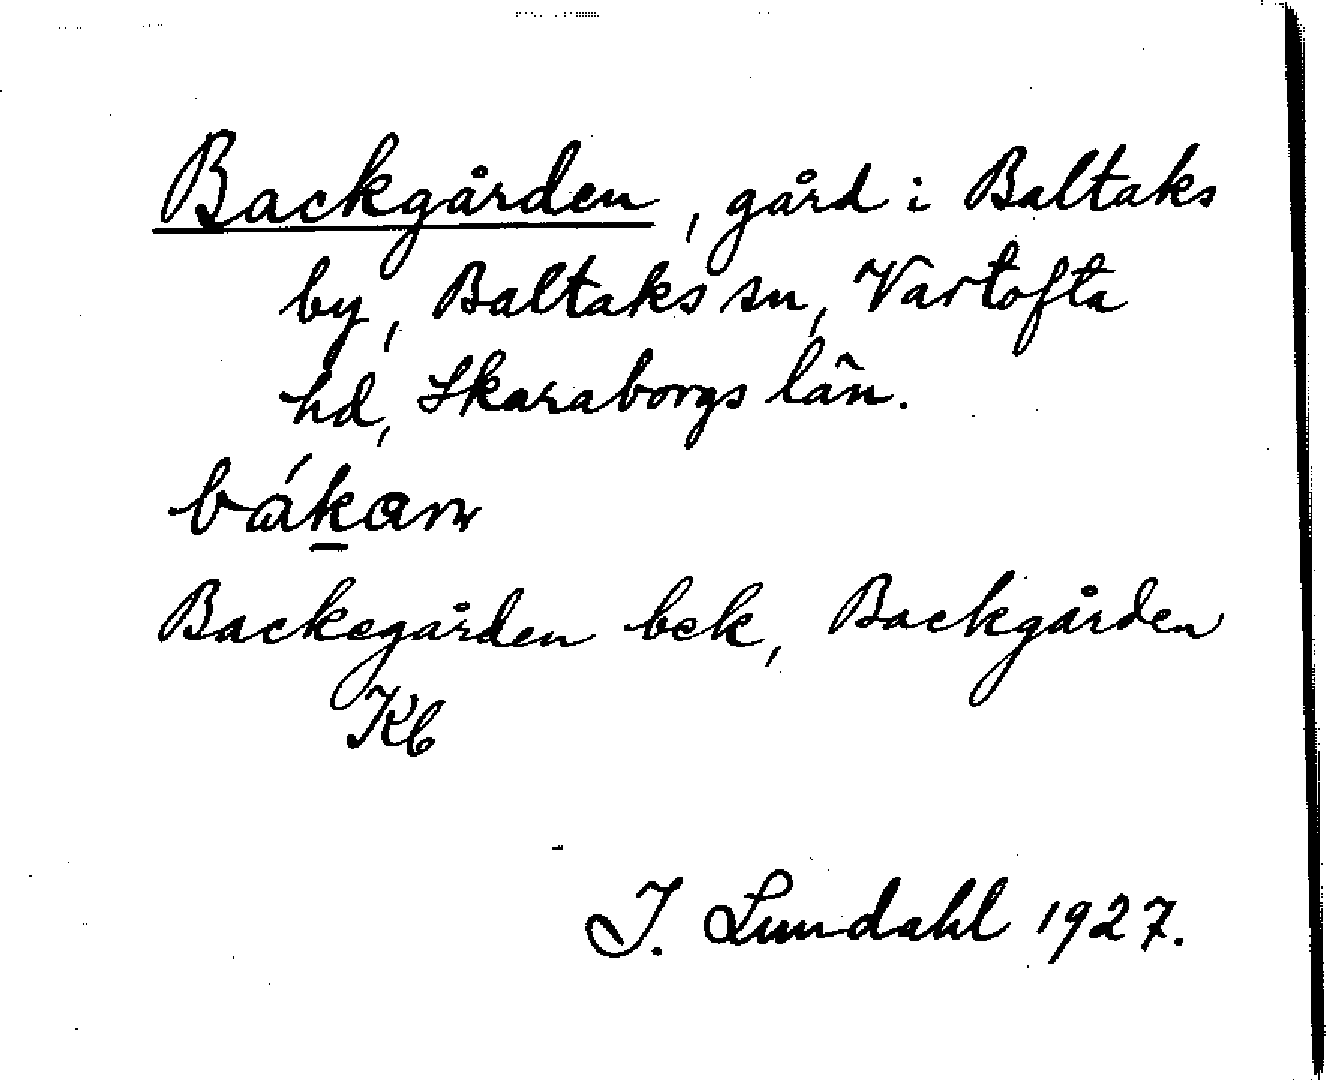 Backgården, gård i Baltaks
by, Baltaks sn, Vartofta
hd, Skaraborgs län.
bákan
Backegården bek, Backgården
Kb
I. Lundahl 1927.